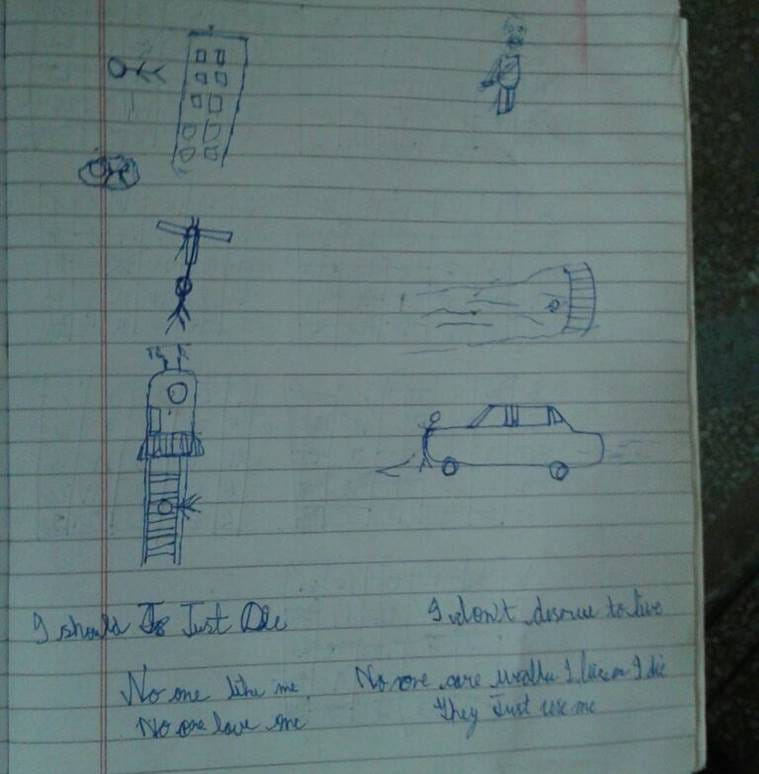 I should Just Die
I don't deserve to live
No one like me
No one care I live or I die
No one love me
They Just use me